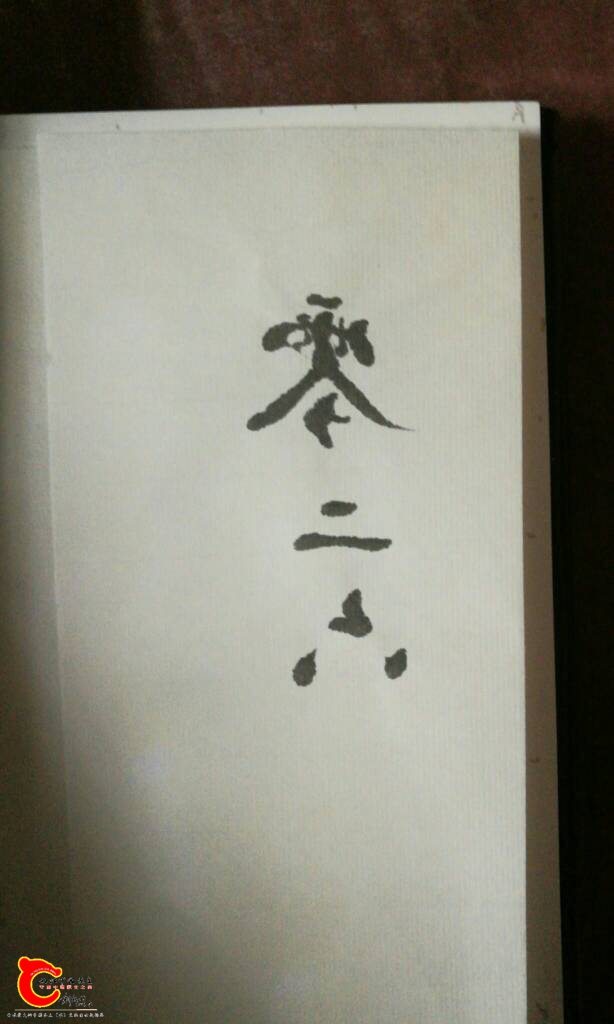 零二六